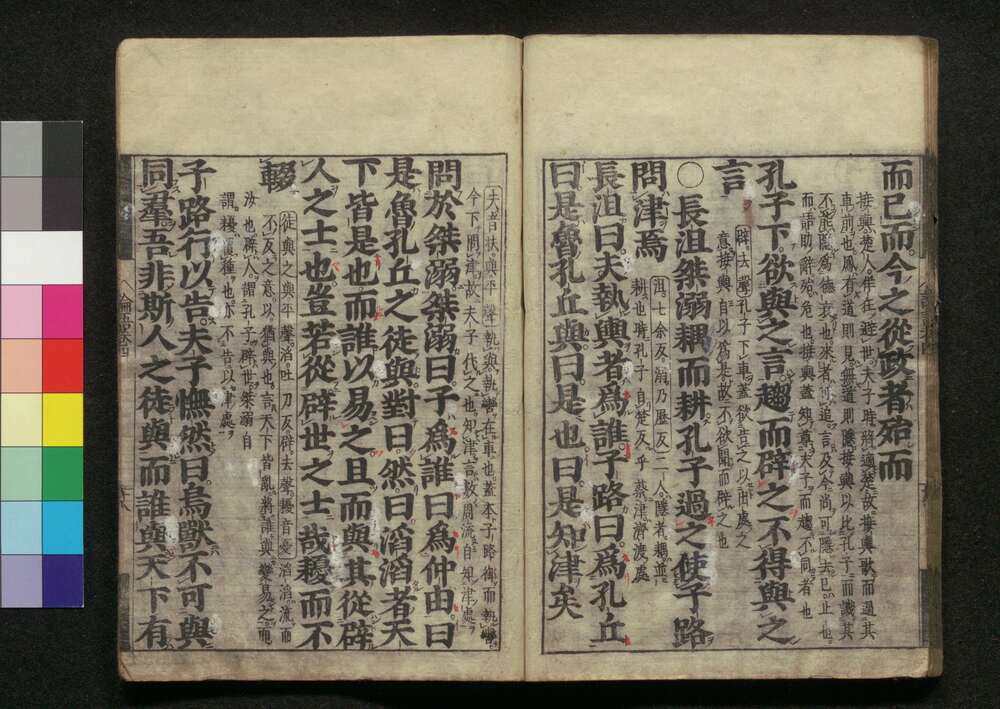 而已而今之從政者殆而
接輿楚人佯狂避世夫子時將適楚故接輿歌而過其
車前也鳳有道則見無道則隱接輿以比孔子而譏其
不能隱爲德衰也來者可追言及今尚可隱去已止也
而語助辭殆危也接輿蓋知尊夫子而趨不同者也
孔子下欲與之言趨而辟之不得與之
言
辟去聲孔子下車蓋欲告之以出處之
意接輿自以爲是故不欲聞而辟之也
○長沮桀溺耦而耕孔子過之使子路
問津焉
沮七余反溺乃歷反二人隱者耦並
耕也時孔子自楚反乎蔡津濟渡處
長沮曰夫執輿者爲誰子路曰爲孔丘
曰是魯孔丘與曰是也曰是知津矣
夫音扶與平聲執輿執轡在車也蓋本子路御而執轡
今下問津故夫子代之也知津言數周流自知津處
問於桀溺桀溺曰子爲誰曰爲仲由曰
是魯孔丘之徒與對曰然曰滔滔者天
下皆是也而誰以易之且而與其從辟
人之士也豈若從辟世之士哉耰而不
輟
徒與之與平聲滔吐刀反辟去聲耰音憂滔滔流而
不反之意以猶與也言天下皆亂將誰與變易之而
汝也辟人謂孔子辟世桀溺自
謂耰覆種也亦不告以津處
子路行以告夫子憮然曰鳥獸不可與
同羣吾非斯人之徒與而誰與天下有